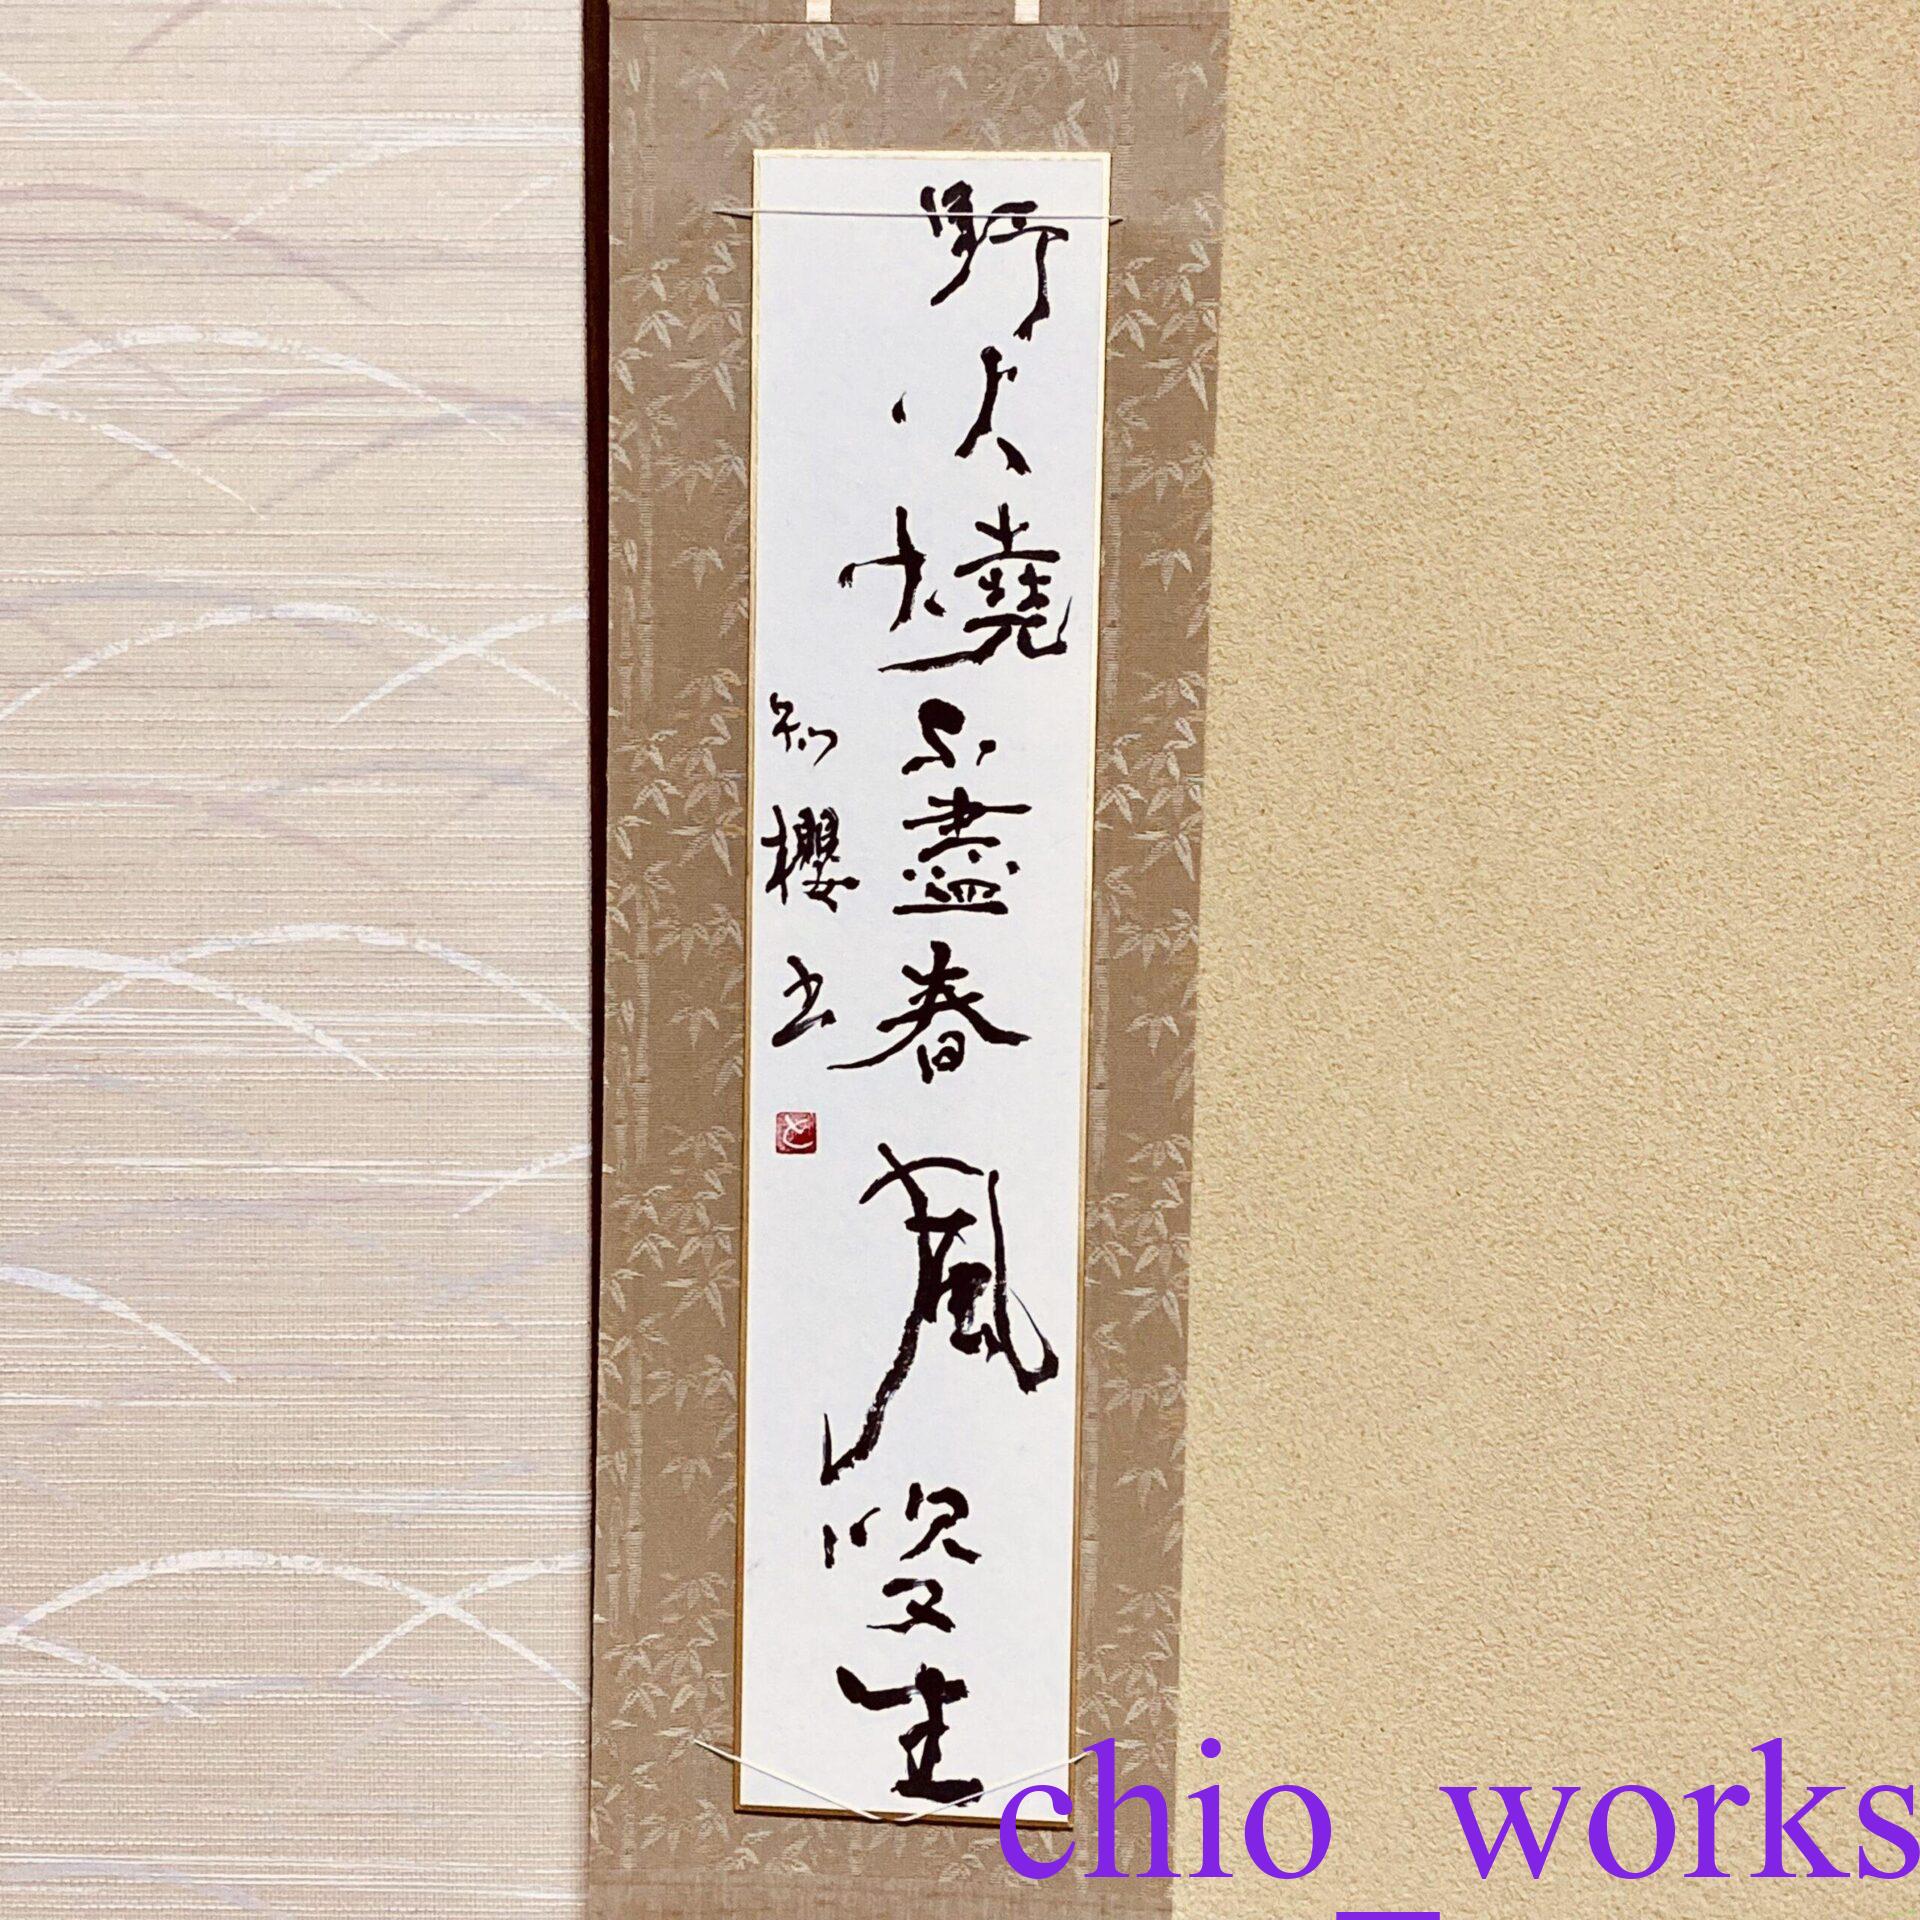 野火燒不盡春風吹又生
知櫻書
と
chio_works